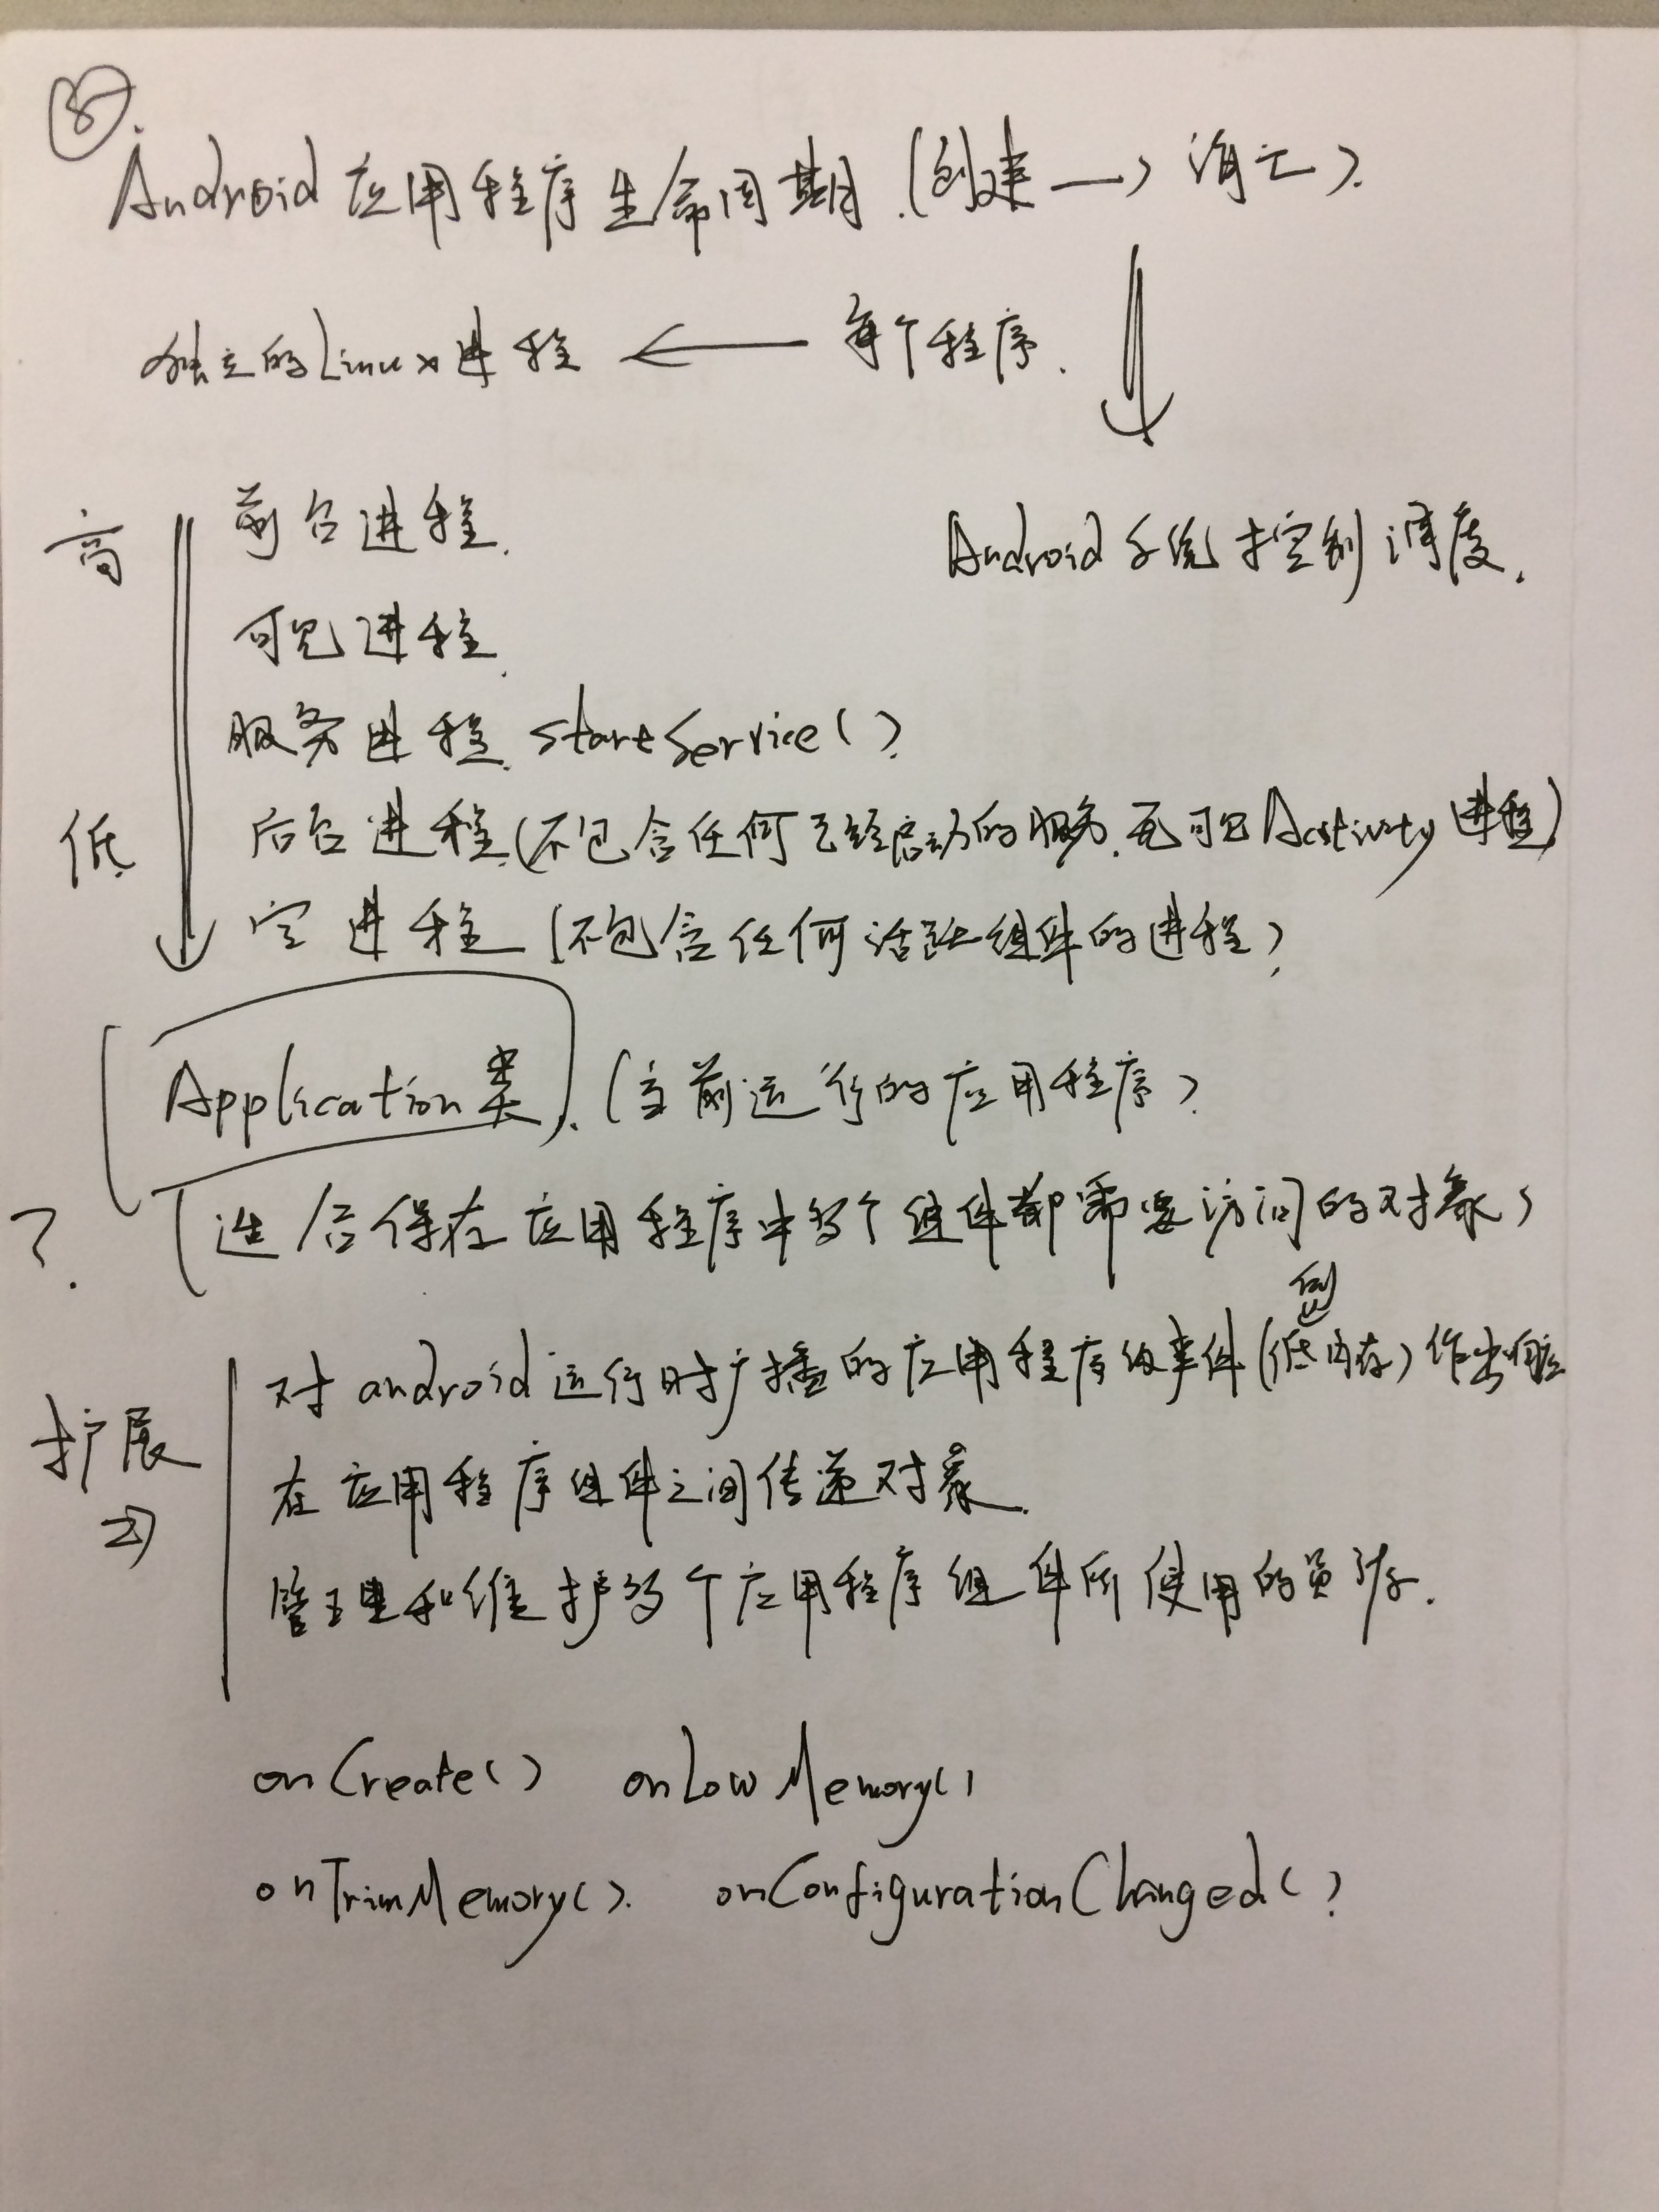 Android 应用程序生命周期.(创建 —> 消亡).
独立的Linux进程 <—— 每个程序.
Android 系统控制调度.
高
前台进程.
可见进程.
服务进程. startService()
低
后台进程.(不包含任何已经启动的服务.无可见Activity进程)
空进程 (不包含任何活跃组件的进程)
Application类). (当前运行的应用程序)
?
(适合保存应用程序中多个组件都需要访问的对象)
例
对 android 运行时广播的应用程序级事件(低内存)作出响应
扩展
在应用程序组件之间传递对象.
管理和维护多个应用程序组件所使用的资源.
onCreate() onLowMemory()
onTrimMemory(). onConfigurationChanged()